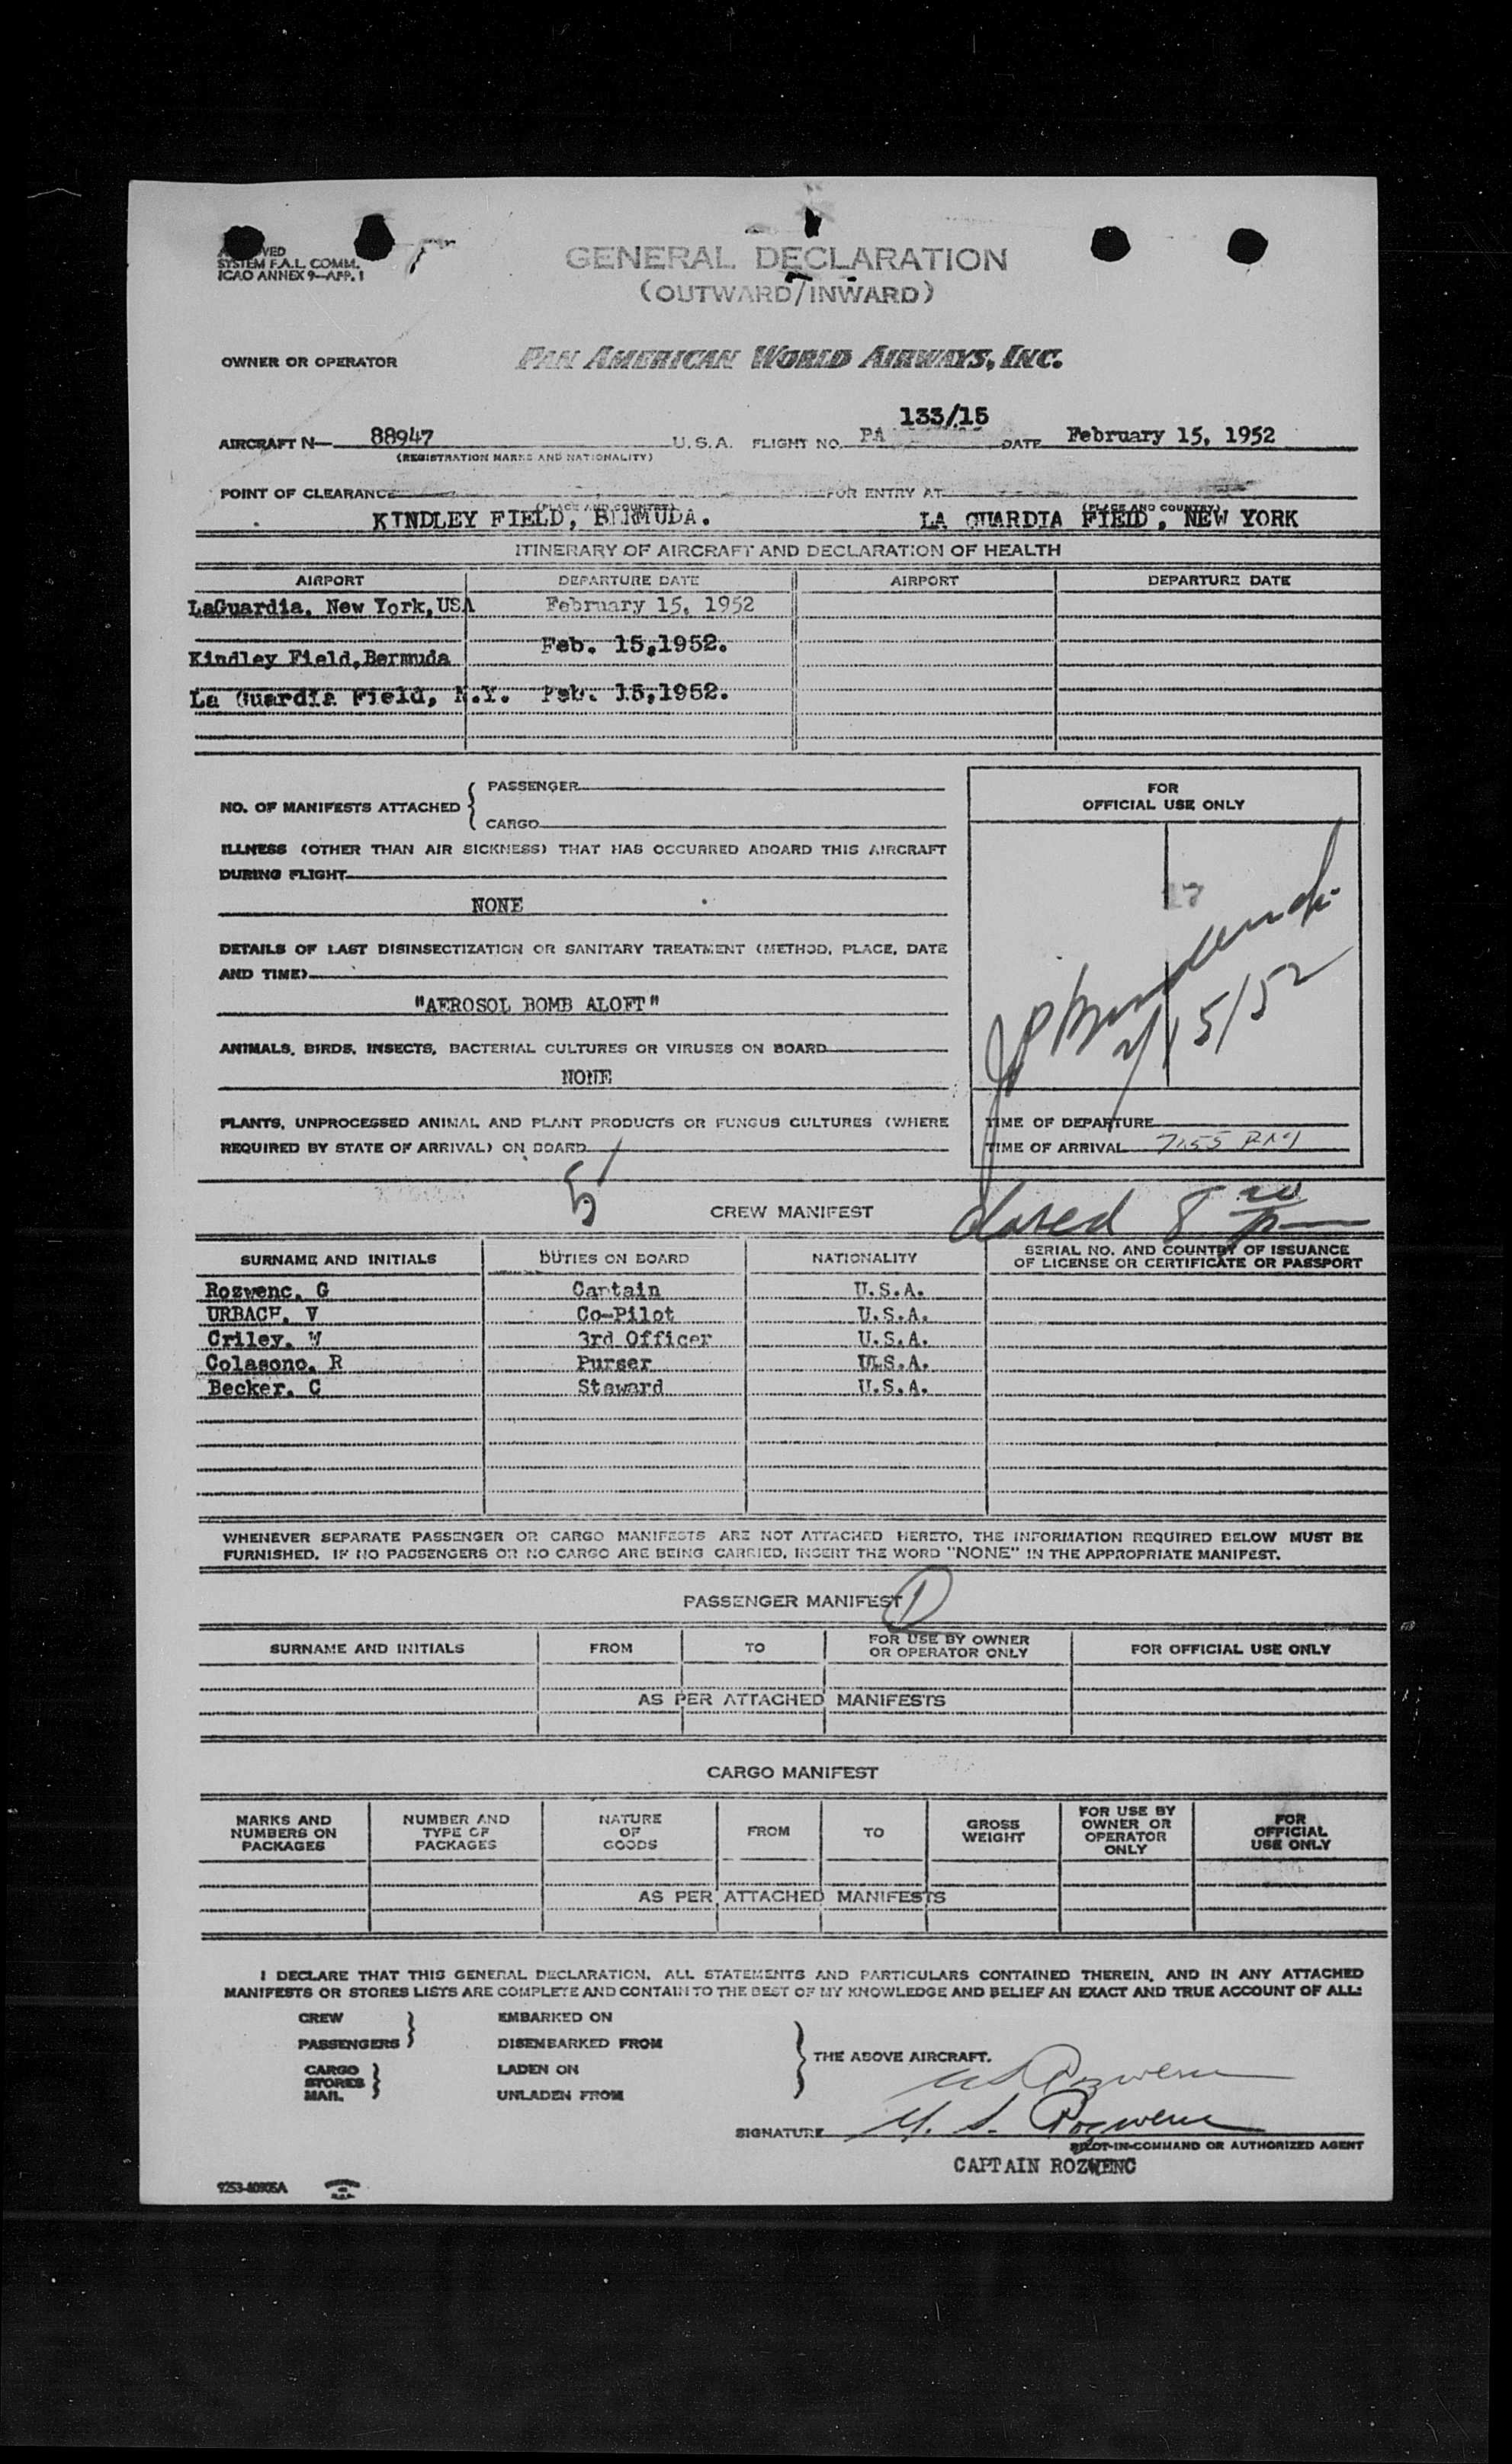 SYSTEM F.A.L. COMM.
ICAO ANNEX 9—APP. 1
GENERAL DECLARATION
(OUTWARD/INWARD)
OWNER OR OPERATOR PAN AMERICAN WORLD AIRWAYS, INC.
133/15
AIRCRAFT N— 88947 U.S.A. FLIGHT NO. PA DATE February 15, 1952
(REGISTRATION MARKS AND NATIONALITY)
POINT OF CLEARANCE FOR ENTRY AT
(PLACE AND COUNTRY) (PLACE AND COUNTRY)
KINDLEY FIELD, BERMUDA. LA GUARDIA FIELD, NEW YORK
ITINERARY OF AIRCRAFT AND DECLARATION OF HEALTH
AIRPORT DEPARTURE DATE AIRPORT DEPARTURE DATE
LaGuardia, New York, USA February 15, 1952
Kindley Field, Bermuda Feb. 15,1952.
La Guardia Field, N.Y. Feb. 15,1952.
NO. OF MANIFESTS ATTACHED { PASSENGER
CARGO
FOR
OFFICIAL USE ONLY
ILLNESS (OTHER THAN AIR SICKNESS) THAT HAS OCCURRED ABOARD THIS AIRCRAFT
DURING FLIGHT
NONE
DETAILS OF LAST DISINSECTIZATION OR SANITARY TREATMENT (METHOD, PLACE, DATE
AND TIME)
"AEROSOL BOMB ALOFT"
ANIMALS, BIRDS, INSECTS, BACTERIAL CULTURES OR VIRUSES ON BOARD
NONE
PLANTS, UNPROCESSED ANIMAL AND PLANT PRODUCTS OR FUNGUS CULTURES (WHERE
REQUIRED BY STATE OF ARRIVAL) ON BOARD
2/15/52
TIME OF DEPARTURE
TIME OF ARRIVAL 7:55 PM
5
CREW MANIFEST
closed 8 20 p
SURNAME AND INITIALS DUTIES ON BOARD NATIONALITY SERIAL NO. AND COUNTRY OF ISSUANCE
OF LICENSE OR CERTIFICATE OR PASSPORT
Rozwenc, G Captain U.S.A.
URBACH, V Co-Pilot U.S.A.
Criley, W 3rd Officer U.S.A.
Colasono, R Purser U.S.A.
Becker, C Steward U.S.A.
WHENEVER SEPARATE PASSENGER OR CARGO MANIFESTS ARE NOT ATTACHED HERETO, THE INFORMATION REQUIRED BELOW MUST BE
FURNISHED. IF NO PASSENGERS OR NO CARGO ARE BEING CARRIED, INSERT THE WORD "NONE" IN THE APPROPRIATE MANIFEST.
PASSENGER MANIFEST 1
SURNAME AND INITIALS FROM TO FOR USE BY OWNER
OR OPERATOR ONLY FOR OFFICIAL USE ONLY
AS PER ATTACHED MANIFESTS
CARGO MANIFEST
MARKS AND
NUMBERS ON
PACKAGES
NUMBER AND
TYPE OF
PACKAGES
NATURE
OF
GOODS
FROM
TO
GROSS
WEIGHT
FOR USE BY
OWNER OR
OPERATOR
ONLY
FOR
OFFICIAL
USE ONLY
AS PER ATTACHED MANIFESTS
I DECLARE THAT THIS GENERAL DECLARATION, ALL STATEMENTS AND PARTICULARS CONTAINED THEREIN, AND IN ANY ATTACHED
MANIFESTS OR STORES LISTS ARE COMPLETE AND CONTAIN TO THE BEST OF MY KNOWLEDGE AND BELIEF AN EXACT AND TRUE ACCOUNT OF ALL:
CREW EMBARKED ON
PASSENGERS } DISEMBARKED FROM
} THE ABOVE AIRCRAFT.
CARGO LADEN ON
STORES }
MAIL UNLADEN FROM
Rozwenc
SIGNATURE G. S. Rozwenc
PILOT-IN-COMMAND OR AUTHORIZED AGENT
CAPTAIN ROZWENC